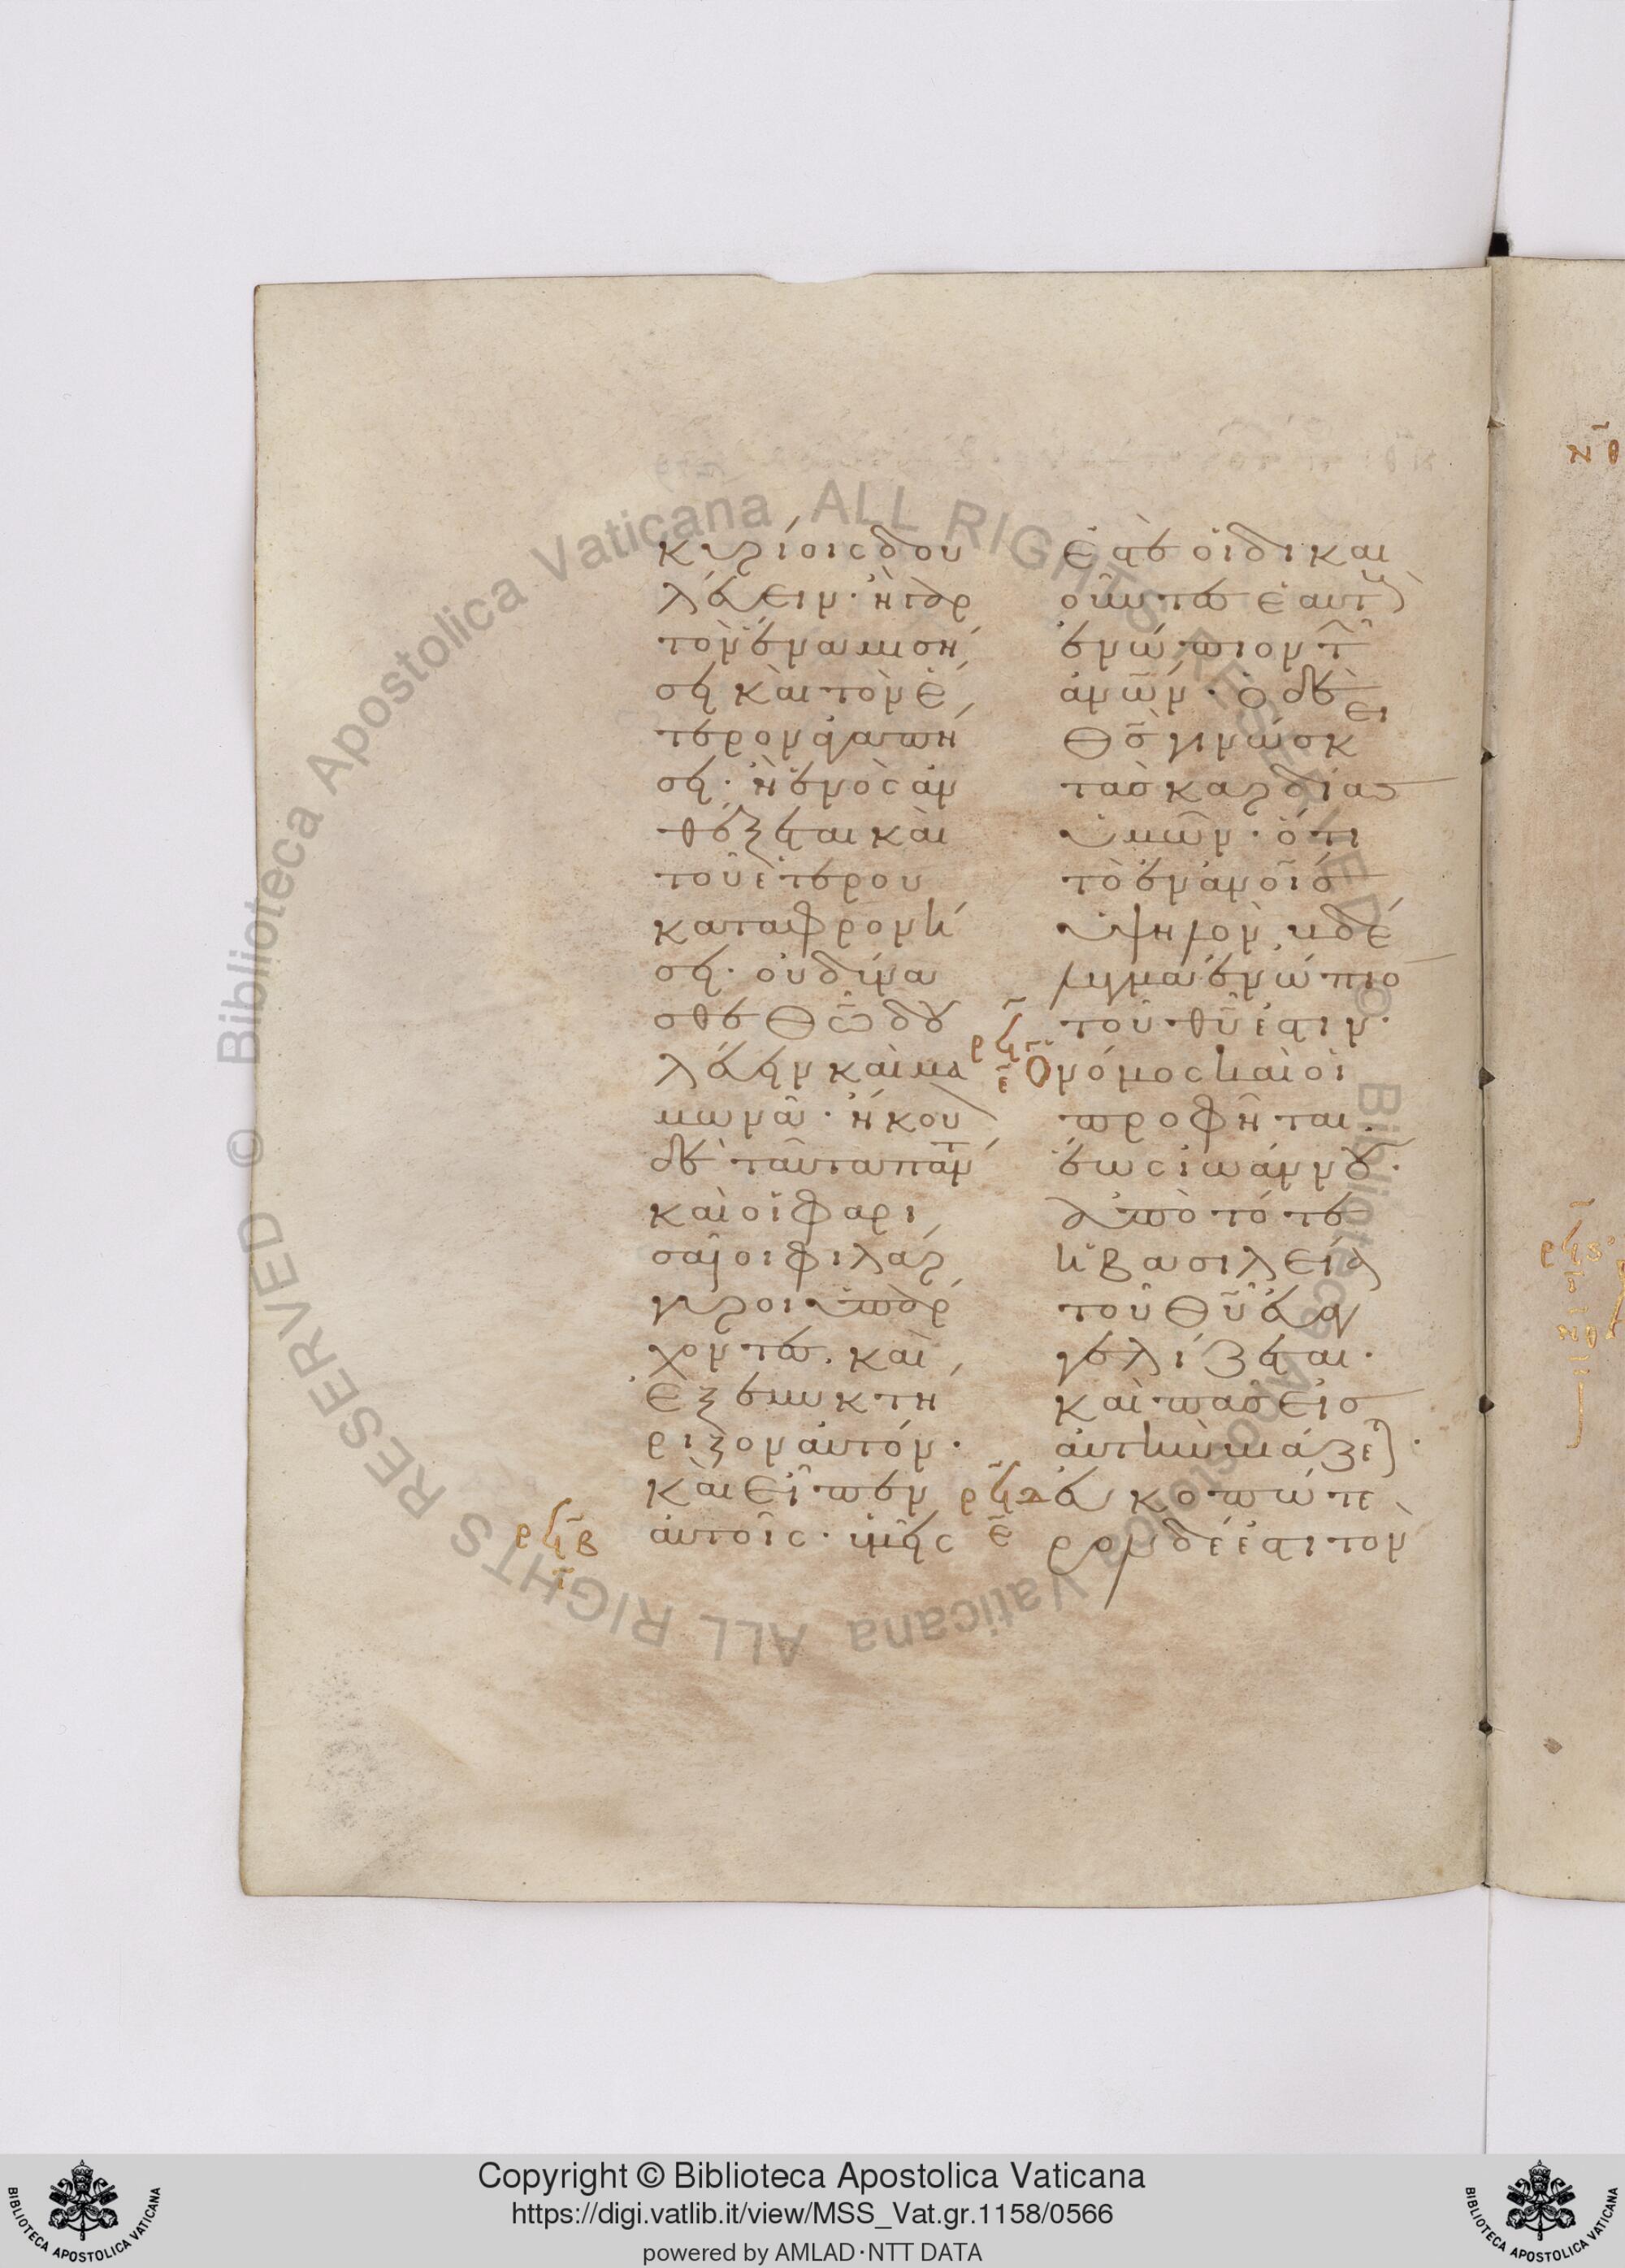 κυρίοις δου
λεύειν· ἢ γὰρ
τὸν ἕνα μισή
σει καὶ τὸν ἕ
τερον ἀγαπή
σει· ἢ ἑνὸς ἀν
θέξεται καὶ
τοῦ ἑτέρου
καταφρονή
σει· οὐ δύνα
σθε θ͞ω δου
λεύειν καὶ μα
μωνᾶ· ἤκουον
δὲ ταῦτα πάντ
καὶ οἱ φαρι
σαῖοι φιλάρ
γυροι ὑπάρ
χοντες· καὶ
ἐξεμυκτή
ριζον αὐτόν·
καὶ εἶπεν
ρϟβ αὐτοῖς· ὑμεῖς
ι
ἐστὲ οἱ δικαι
οῦντες ἑαυτοὺς
ἐνώπιον τῶν
ἀν͞ων· ὁ δὲ
θ͞ς γινώσκει
τὰς καρδίας
ὑμῶν· ὅτι
τὸ ἐν ἀν͞οις
ὑψηλὸν, βδέ
λυγμα ἐνώπιο
τοῦ θ͞υ ἐστιν·
ρϟγ
ε Ὁ νόμος καὶ οἱ
προφῆται
ἕως ἰωάννου·
ἀπὸ τότε
ἡ βασιλεία
τοῦ θ͞υ εὐαγ
γελίζεται·
καὶ πᾶς εἰς
αὐτὴν βιάζεται·
ρϟδ εὐκοπώτε
ε ρον δέ ἐστι τὸν
Copyright © Biblioteca Apostolica Vaticana
https://digi.vatlib.it/view/MSS_Vat.gr.1158/0566
powered by AMLAD·NTT DATA
BIBLIOTECA APOSTOLICA VATICANA
BIBLIOTECA APOSTOLICA VATICANA
© Biblioteca Apostolica Vaticana ALL RIGHTS RESERVED
© Biblioteca Apostolica Vaticana ALL RIGHTS RESERVED